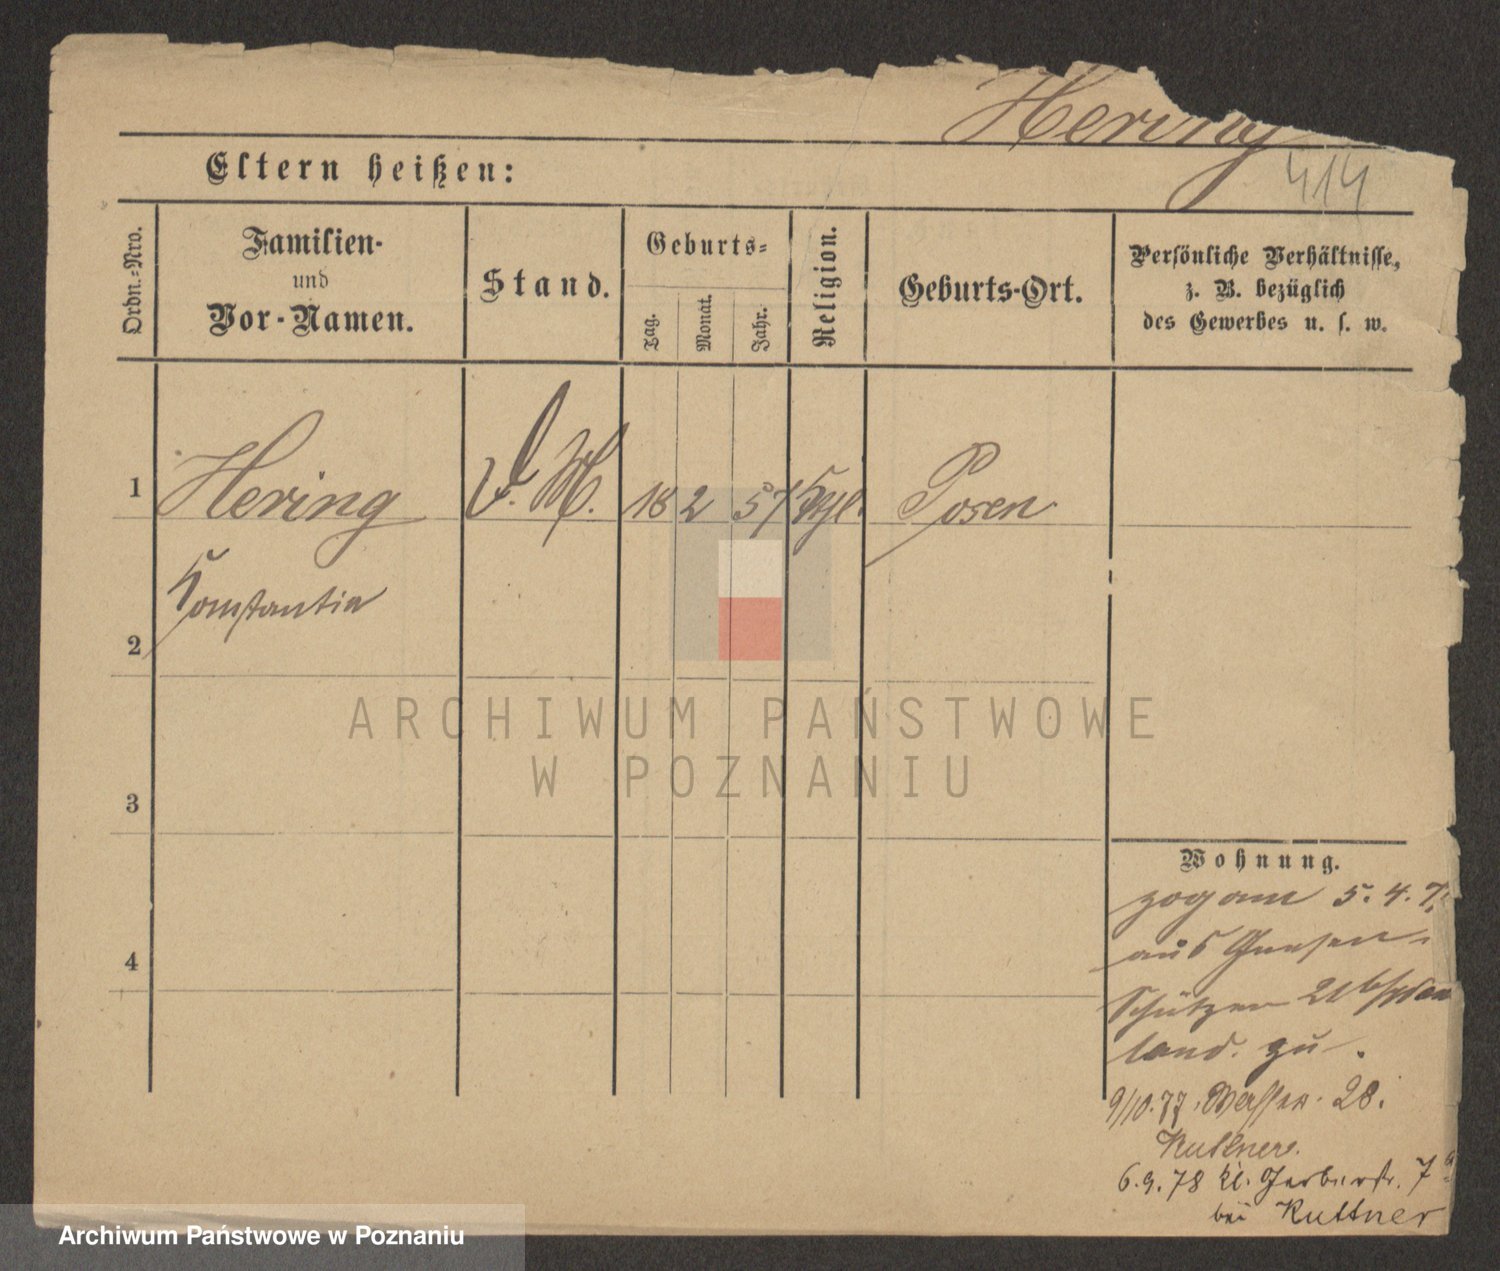 Hering
414
Eltern heißen:
Ordn.-Nro.
Familien-
und
Vor-Namen.
Stand.
Geburts-
Tag.
Monat.
Jahr.
Religion.
Geburts-Ort.
Persönliche Verhältnisse,
z. B. bezüglich
des Gewerbes u. s. w.
1
Hering
D. M.
18
2
57
Posen
Konstantia
2
ARCHIWUM PAŃSTWOWE
W POZNANIU
3
Wohnung.
zog am 5. 4. 7
aus Gnesen
4
Schützen 21 b/
land. zu.
9/10. 77. Wasser. 28.
Kuttner.
6. 9. 78 kl. Gerberstr. 7a
bei Kuttner
Archiwum Państwowe w Poznaniu